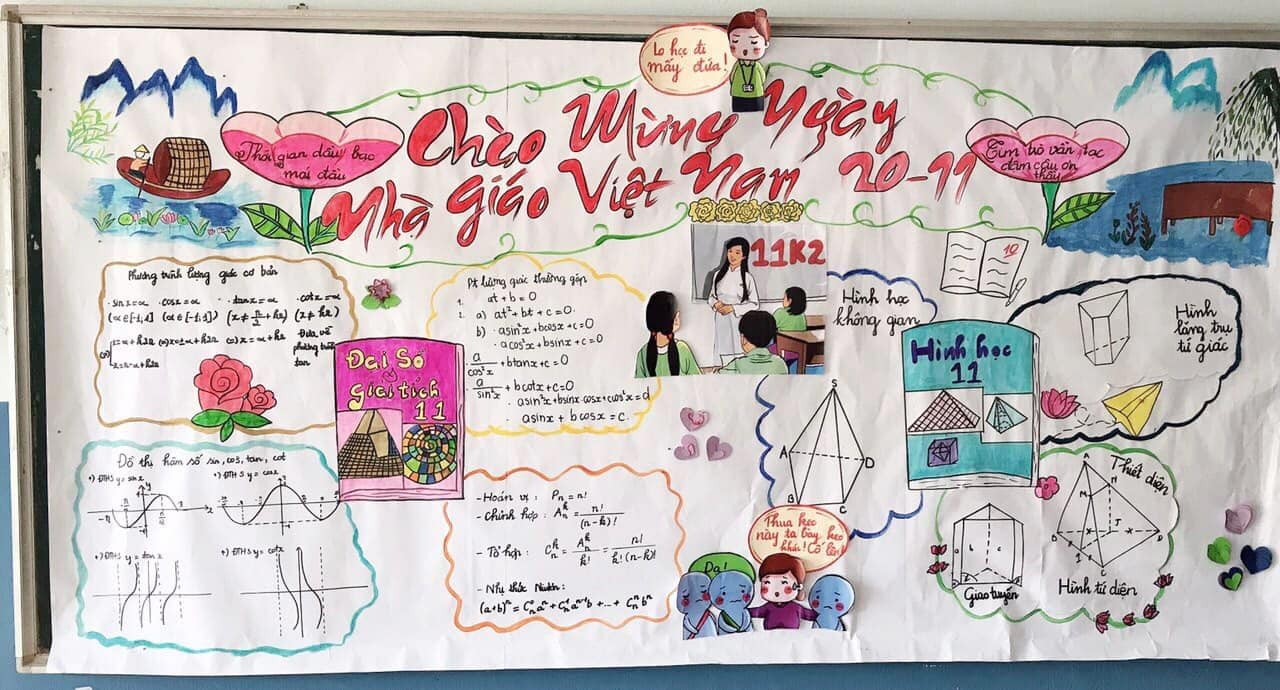 Lo học đi
mấy đứa!
Chào Mừng Ngày
Nhà Giáo Việt Nam 20-11
Thời gian dẫu bạc
mái đầu
Tim trò vẫn tạc
đậm câu ơn
thầy
Phương trình lượng giác cơ bản
· sinx=α · cosx=α · tanx=α · cotx=α
(α∈[-1;1]) (α∈[-1;1]) (x≠π/2+kπ) (x≠kπ)
x=α+k2π (=)x=±α+k2π (=)x=α+kπ
x=π-α+k2π
Đưa về
phương trình
tan
Pt lượng giác thường gặp
1. at+b=0
2. a) at²+bt+c=0
b) · asin²x+bcosx+c=0
· acos²x+bsinx+c=0
· a/cos²x + btanx+c=0
· a/sin²x + bcotx+c=0
· asin²x+bsinx·cosx+ccos²x=d
· asinx + bcosx=c
11K2
10
Hình học
không gian
Hình
lăng trụ
tứ giác
Đại Số
&
Giải tích
11
Hình học
11
S
A
D
B
C
Đồ thị hàm số sin, cos, tan, cot
+) ĐTHS y=sinx +) ĐTHS y=cosx
+) ĐTHS y=tanx +) ĐTHS y=cotx
- Hoán vị : Pn=n!
- Chỉnh hợp : Aⁿₖ = n!/(n-k)!
- Tổ hợp : Cₙᵏ = Aₙᵏ/k! = n!/k!(n-k)!
- Nhị thức Niutơn:
(a+b)ⁿ=Cₙ⁰aⁿ+Cₙ¹aⁿ⁻¹b+...+Cₙⁿbⁿ
Dạ!
Thua keo
này ta bày keo
khác! Cố lên!
Giao tuyến
Thiết diện
Hình tứ diện